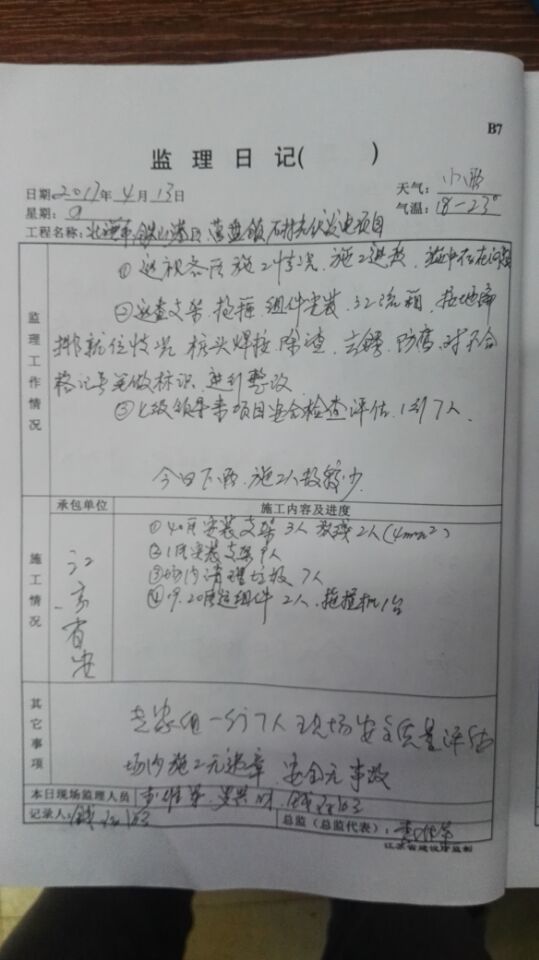 B7
监理日记( )
日期: 2017年4月13日
天气: 小雨
星期: 四
气温: 18-23°
工程名称: 北海市铁山港区营盘镇石村光伏发电项目
监理工作情况
①巡视各区施工情况、施工进度、施中存在问题
②巡查支架、桩基、组件安装、汇流箱、接地
排就位情况 桩头焊接、除渣、去锈、防腐、对不合
格记号笔做标识、进行整改
③上级领导来项目安全检查评估、1行7人、
今日下雨、施工人数较少
承包单位
施工内容及进度
施工情况
江苏省安
①40区安装支架 3人 放线2人(4mm²)
②1区安装支架9人
③场内清理垃圾 7人
④19.20区运组件 2人、拖拉机1台
其它事项
专家组一行7人现场安全质量评估
场内施工无违章、安全无事故
本日现场监理人员
记录人:
总监（总监代表）:
江苏省建设厅监制